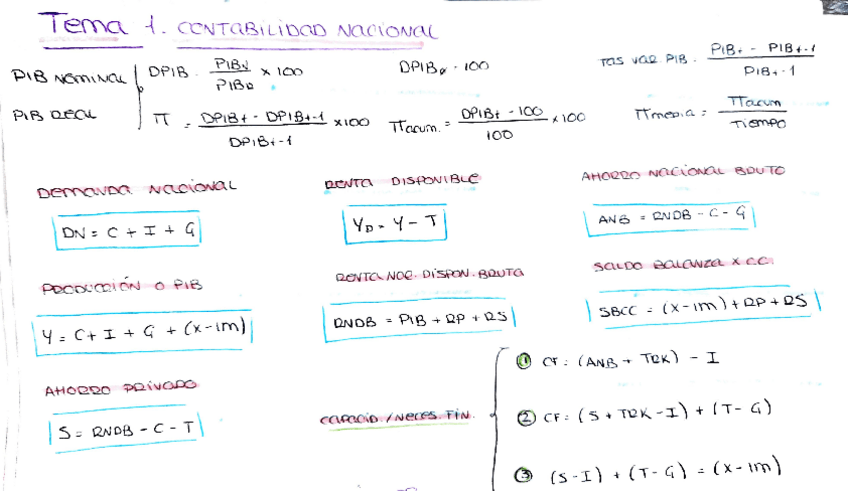 Tema 1. CONTABILIDAD NACIONAL
PIB NOMINAL
PIB REAL
DPIB = PIBN / PIBR x 100
DPIB₀ = 100
Tas var PIB = PIBt - PIBt-1 / PIBt-1
π = DPIBt - DPIBt-1 / DPIBt-1 x100
πacum. = DPIBt - 100 / 100 x 100
πmedia = πacum / Tiempo
DEMANDA NACIONAL
DN = C + I + G
RENTA DISPONIBLE
YD = Y - T
AHORRO NACIONAL BRUTO
ANB = RNDB - C - G
PRODUCCIÓN O PIB
Y = C + I + G + (X-IM)
RENTA NAC. DISPON. BRUTA
RNDB = PIB + RP + RS
SALDO BALANZA X CC.
SBCC = (X-IM) + RP + RS
AHORRO PRIVADO
S = RNDB - C - T
CAPACID / NECES FIN.
① CF: (ANB + TRK) - I
② CF: (S + TRK - I) + (T - G)
③ (S-I) + (T-G) = (X-IM)